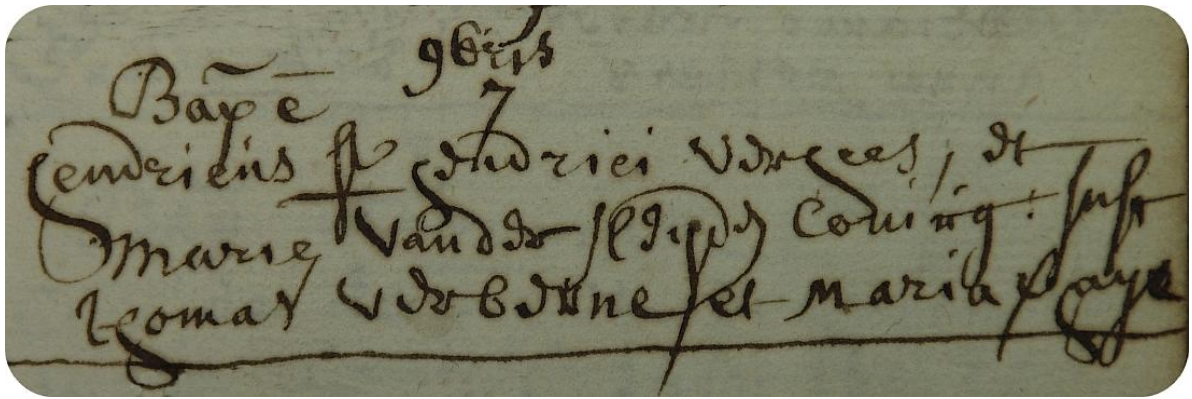 9bris
Bap̄ ē 7
Hendricus fs Hendrici Verhees, et
Marie vander coniug: susc
Thomas verberne et Maria